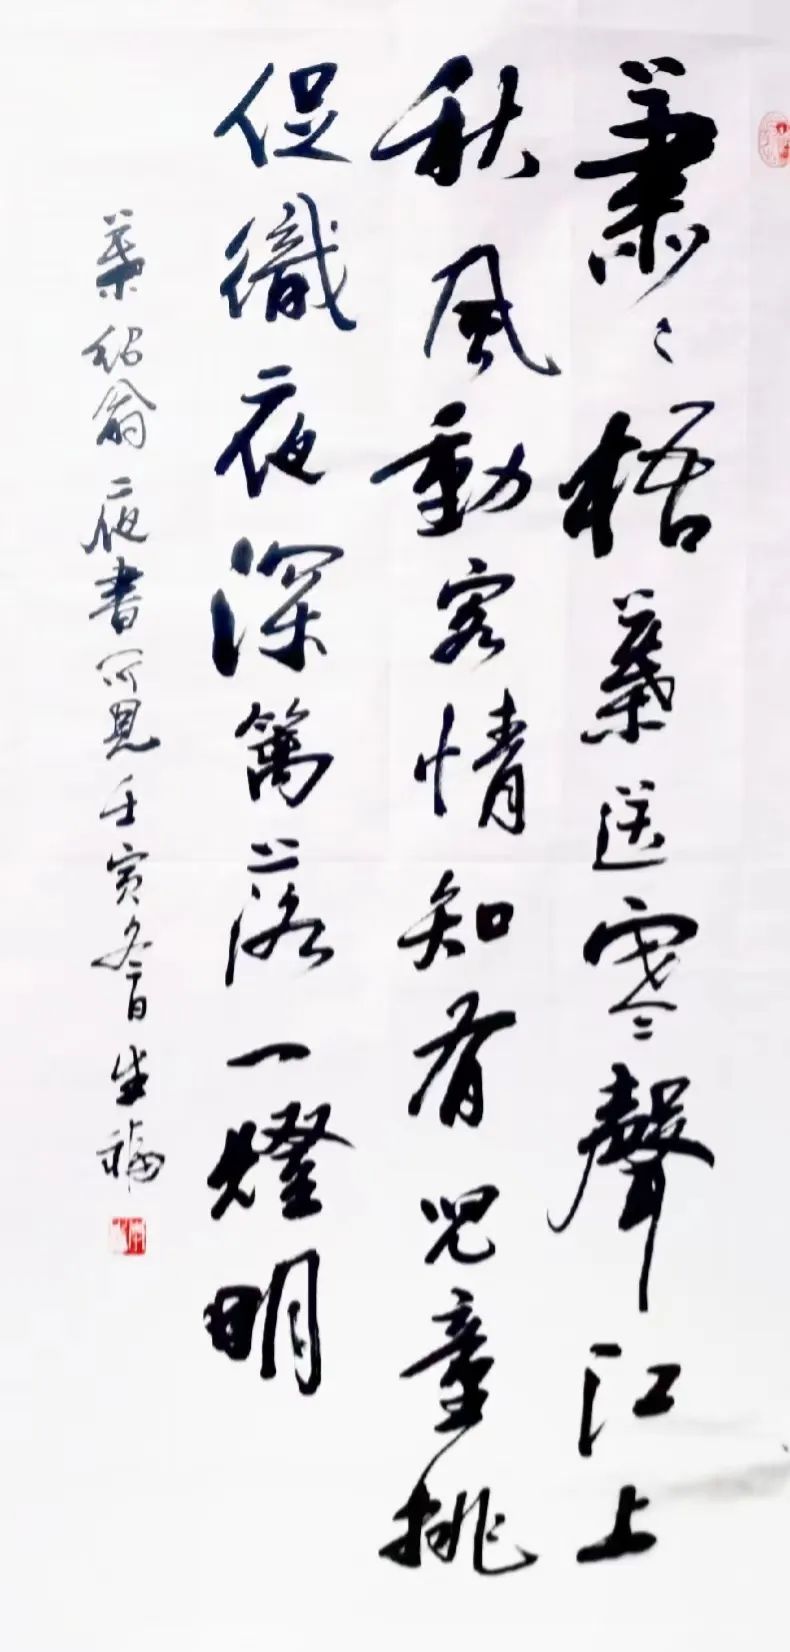 蕭々梧葉送寒聲江上
秋風動客情知有兒童挑
促織夜深篱落一燈明
葉紹翁夜書所見壬寅冬生福